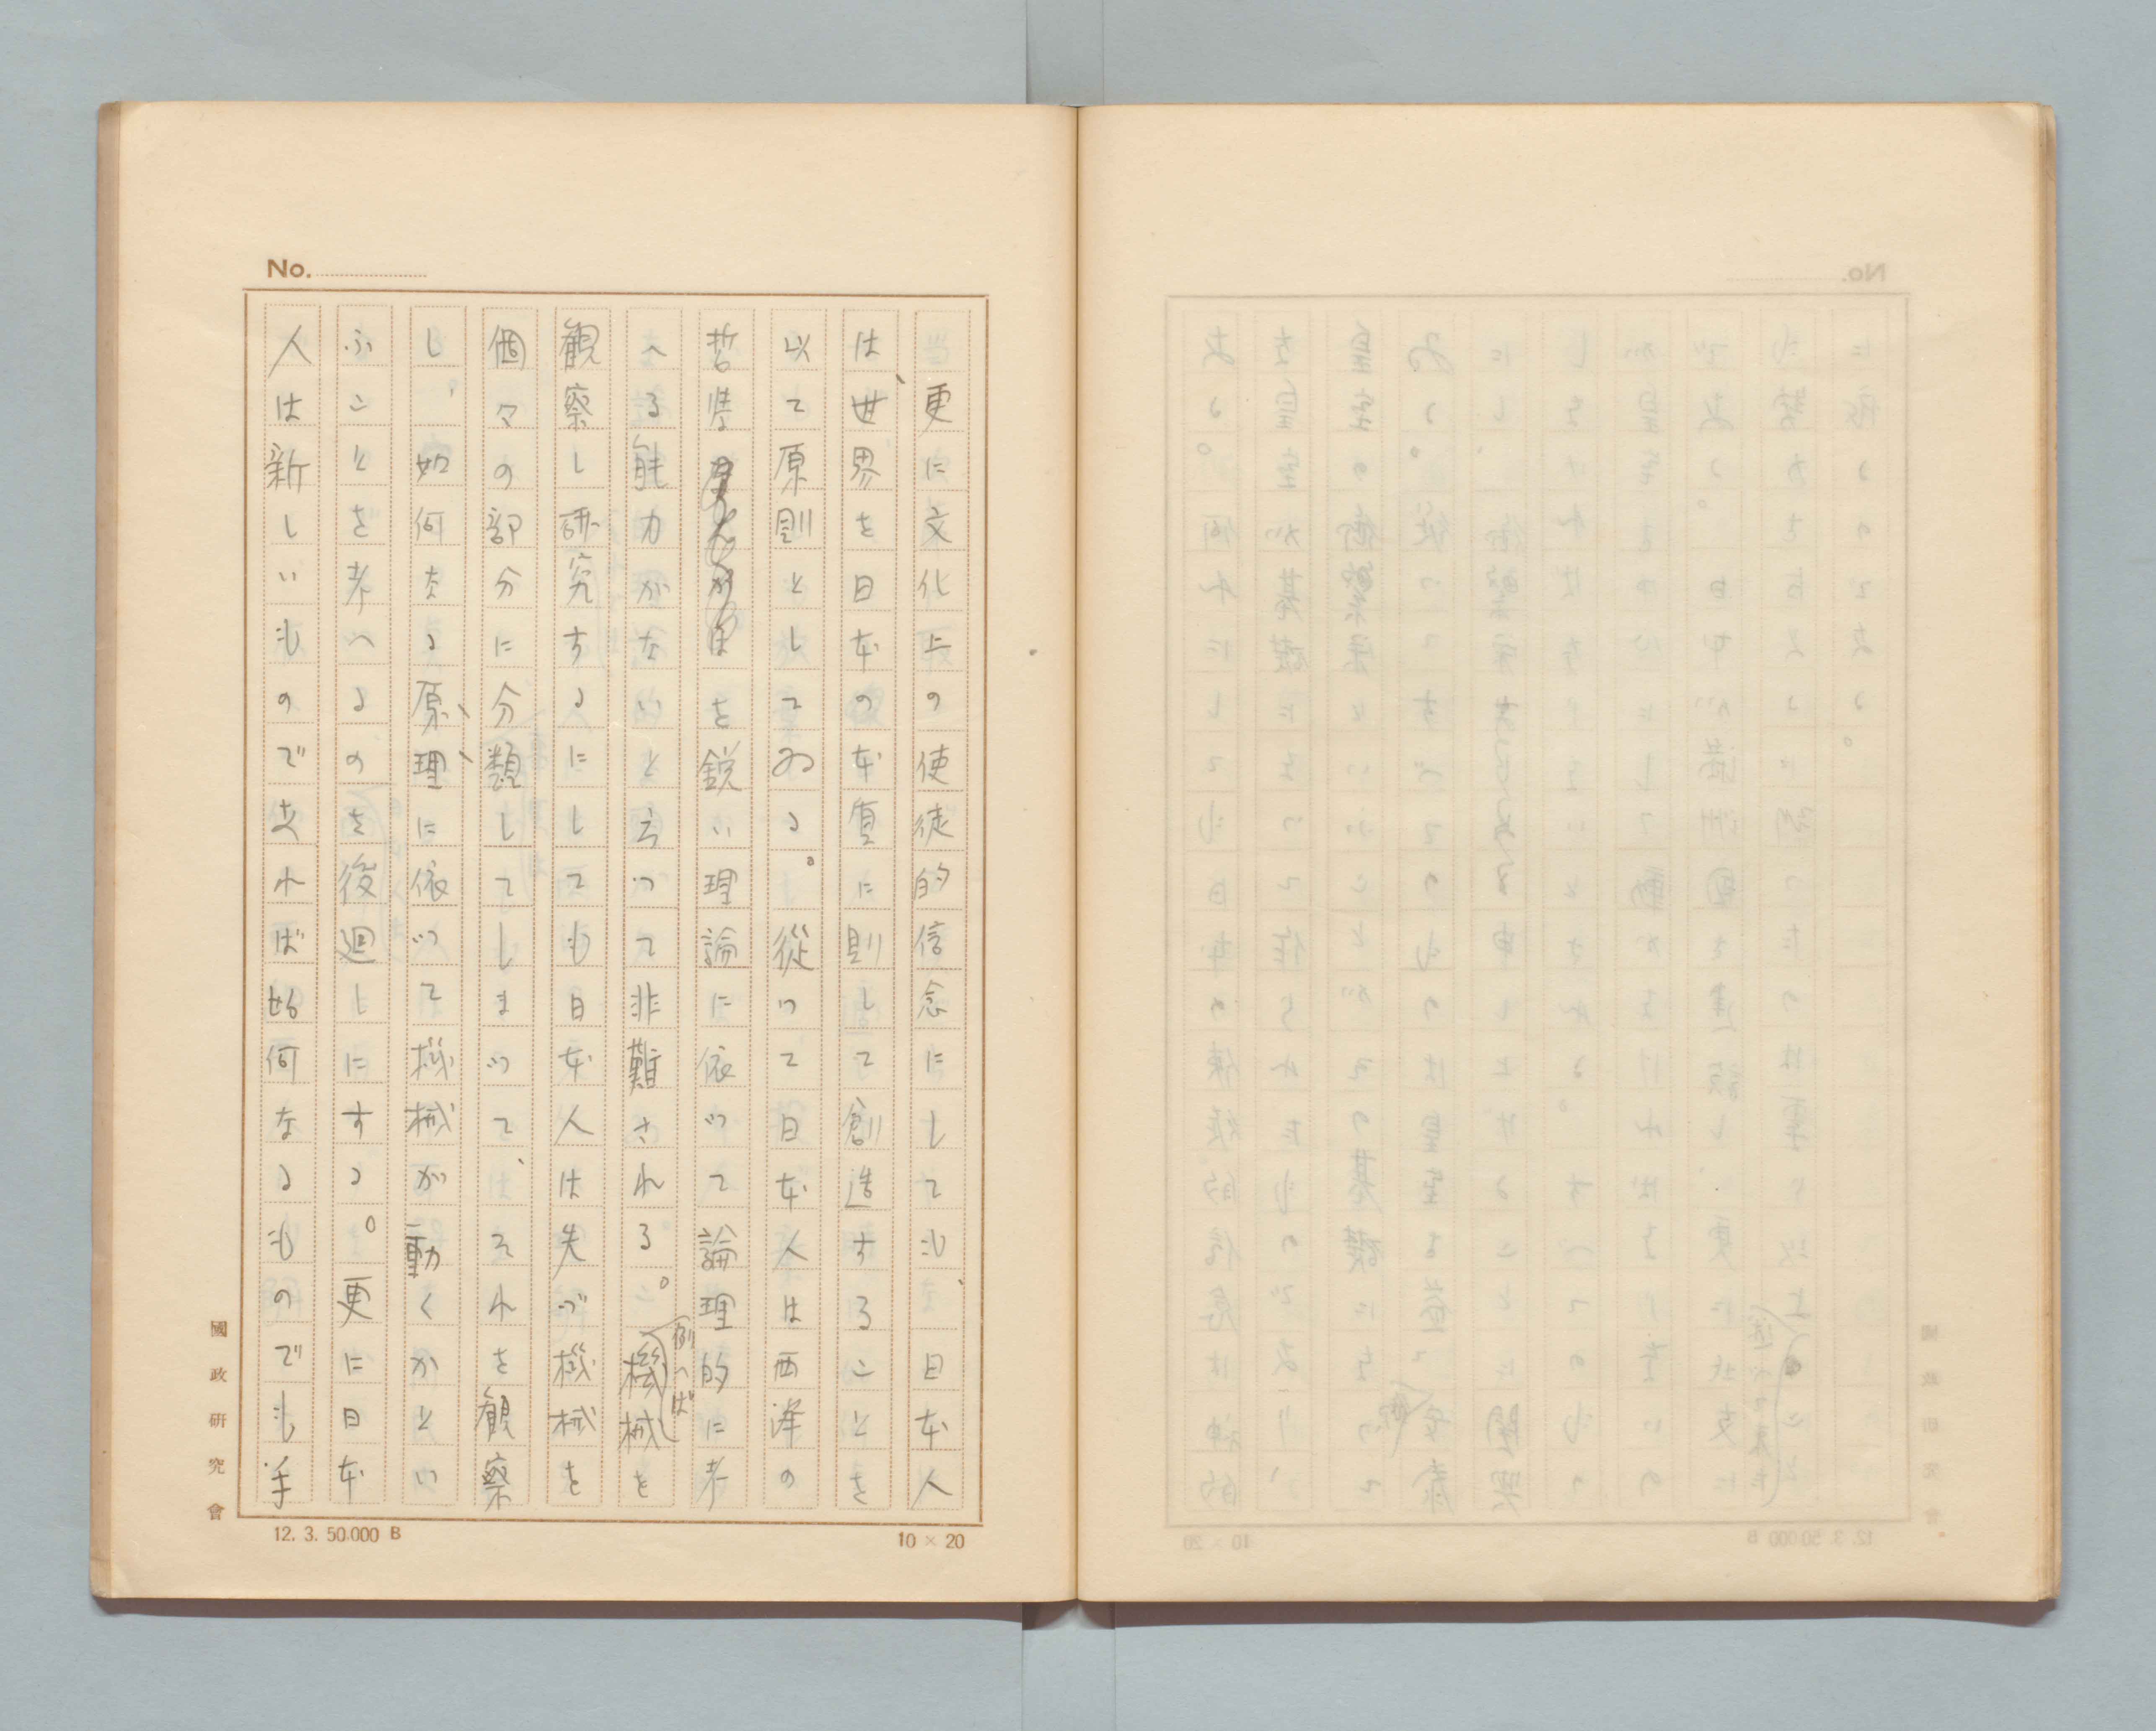 No.
更に文化上の使徒的信念にしても、日本人
は、世界を日本の本質に則して創造することを
以て原則としてゐる。従つて日本人は西洋の
哲学を鋭い理論に依つて論理的に考
へる能力がないと云つて非難される。例へば機械を
観察し研究するにしても日本人は先づ機械を
個々の部分に分類してしまつて、それを観察
し、如何なる原理に依つて機械が動くかとい
ふことを考へるのを後廻しにする。更に日本
人は新しいものであれば如何なるものでも手
國政研究會
12. 3. 50.000 B
10 × 20